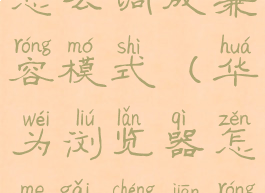 怎么调成兼
róng mó shì huá
容模式（华
wéi liú lǎn qì zěn
为浏览器怎
me gǎi chéng jiān róng